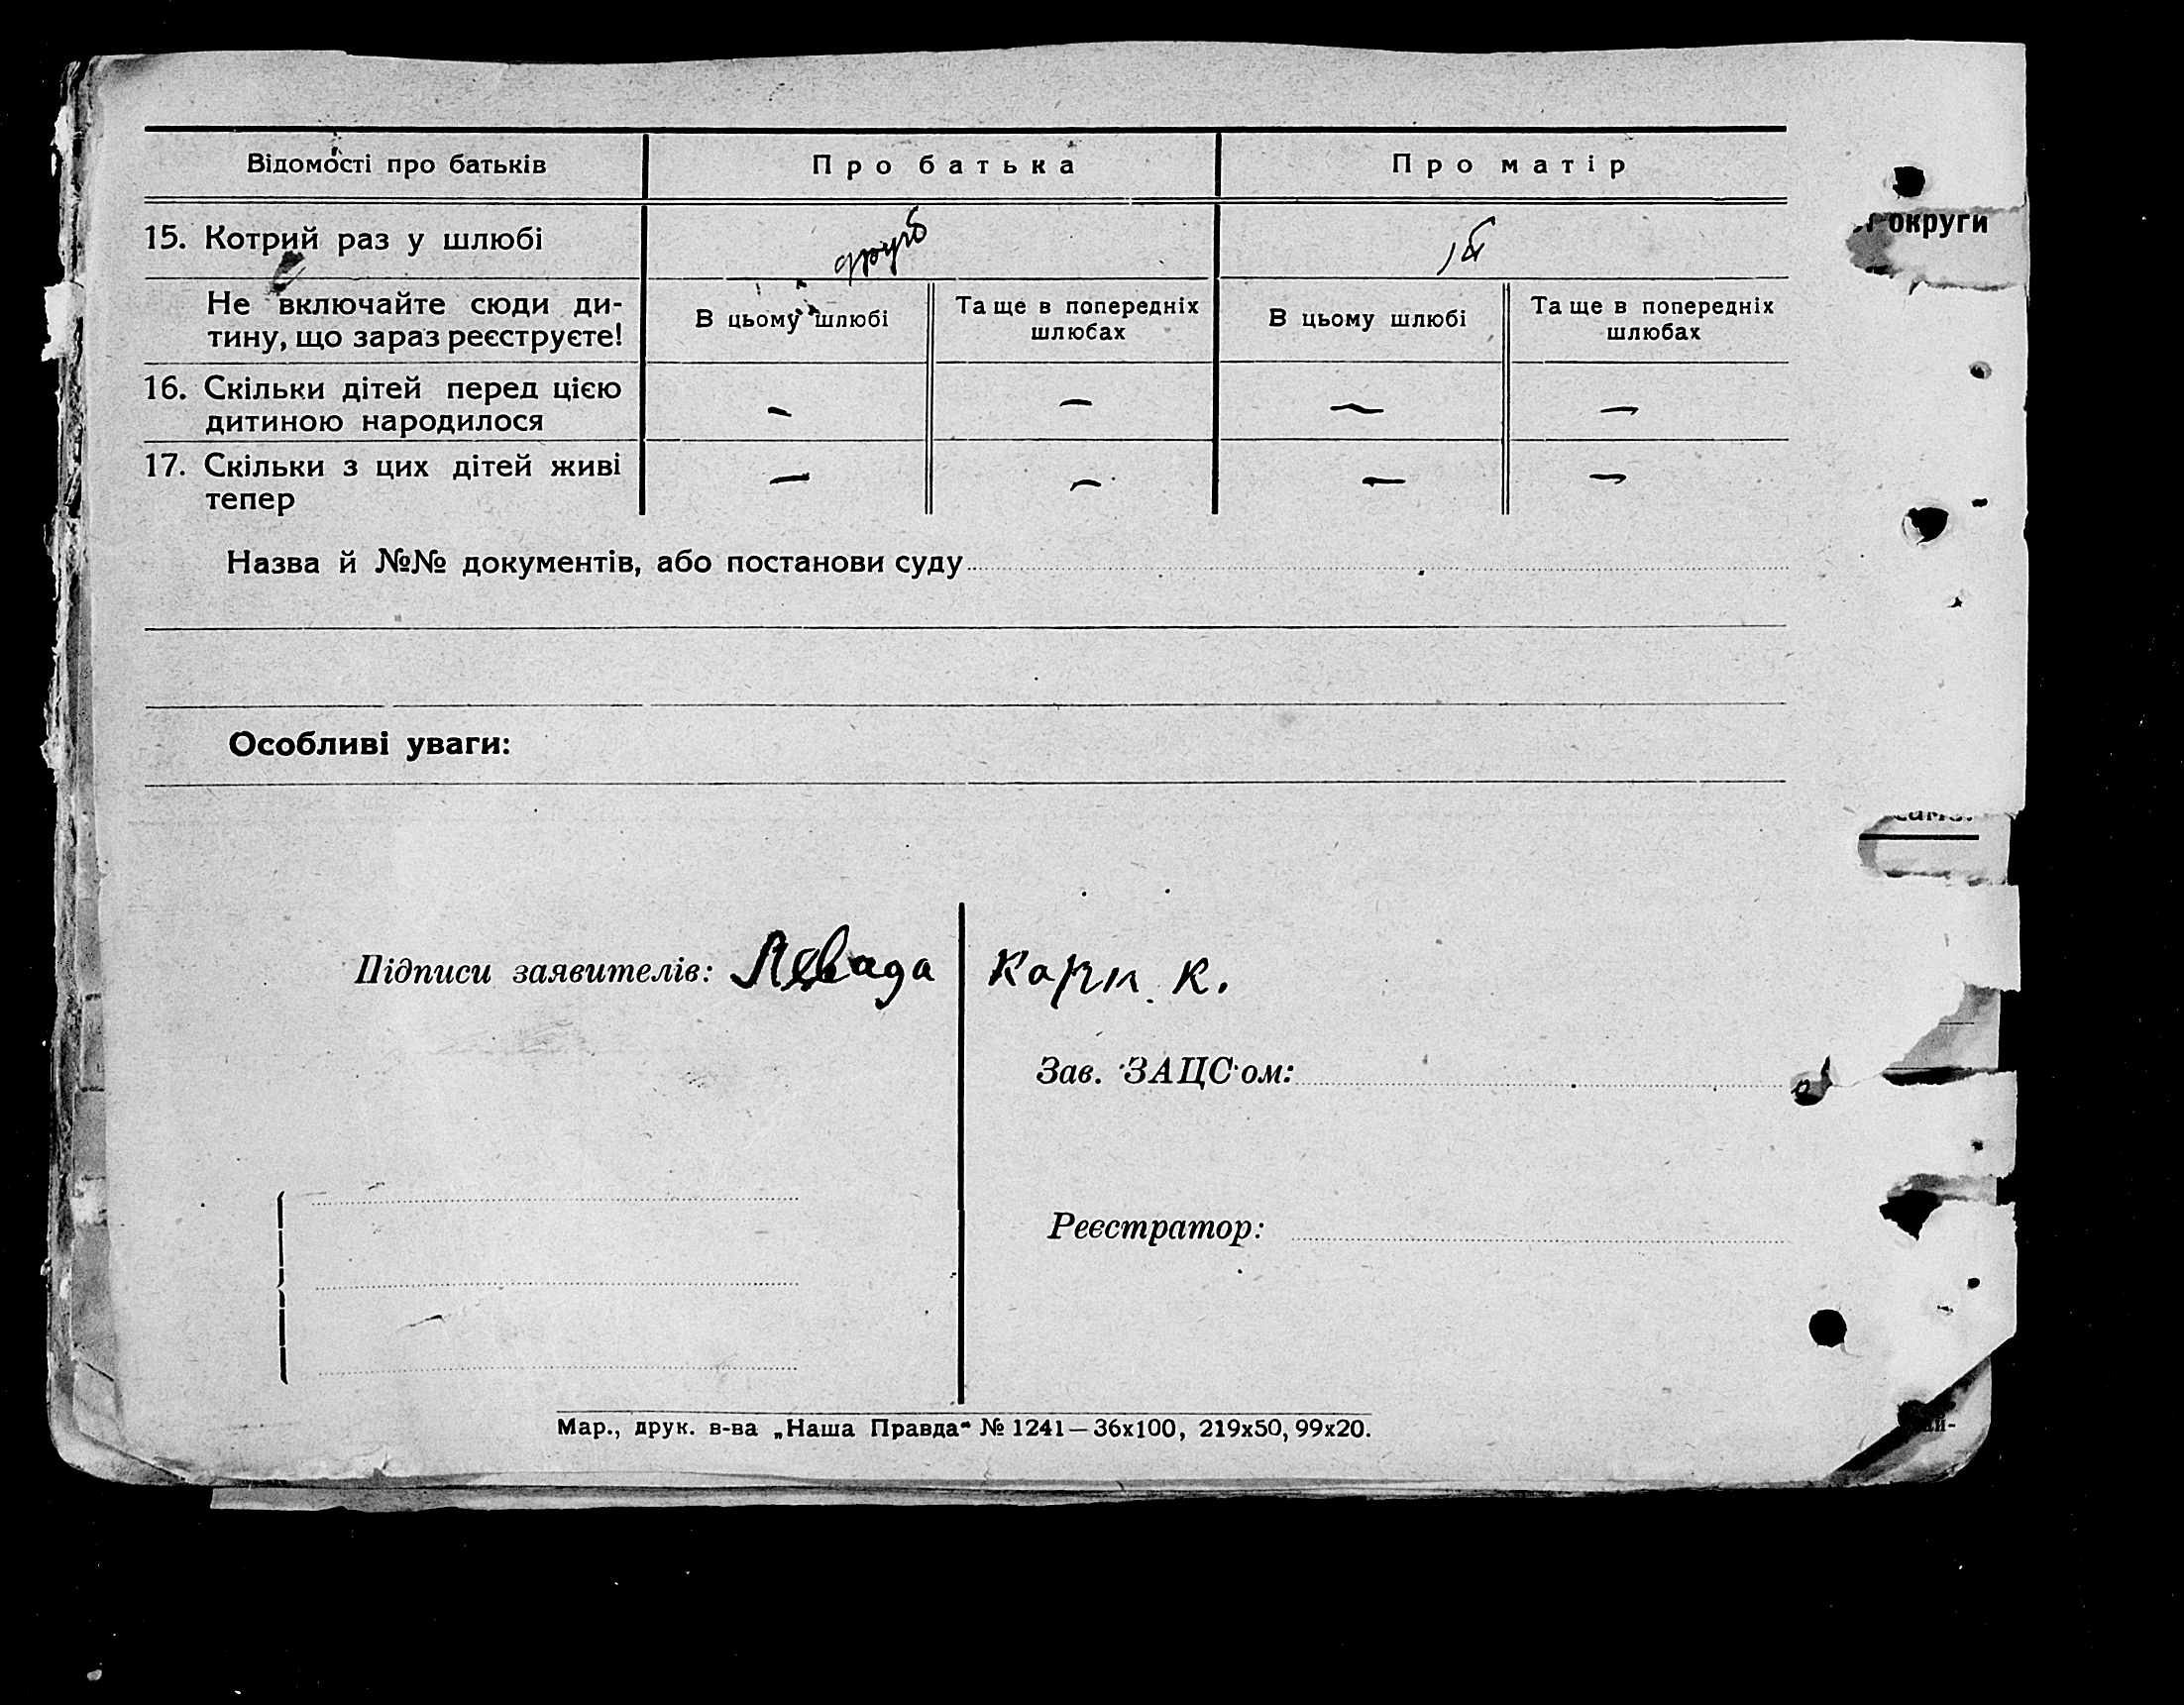 Відомості про батьків Про батька Про матір
15. Котрий раз у шлюбі
округи
Не включайте сюди ди-
тину, що зараз реєструєте!
В цьому шлюбі Та ще в попередніх
шлюбах
В цьому шлюбі Та ще в попередніх
шлюбах
16. Скільки дітей перед цією
дитиною народилося
— — — —
17. Скільки з цих дітей живі
тепер
— — — —
Назва й №№ документів, або постанови суду
Особливі уваги:
Підписи заявителів: Левада Карп К.
Зав. ЗАЦС'ом:
Реєстратор:
Мар., друк. в-ва „Наша Правда“ № 1241—36х100, 219х50, 99х20.